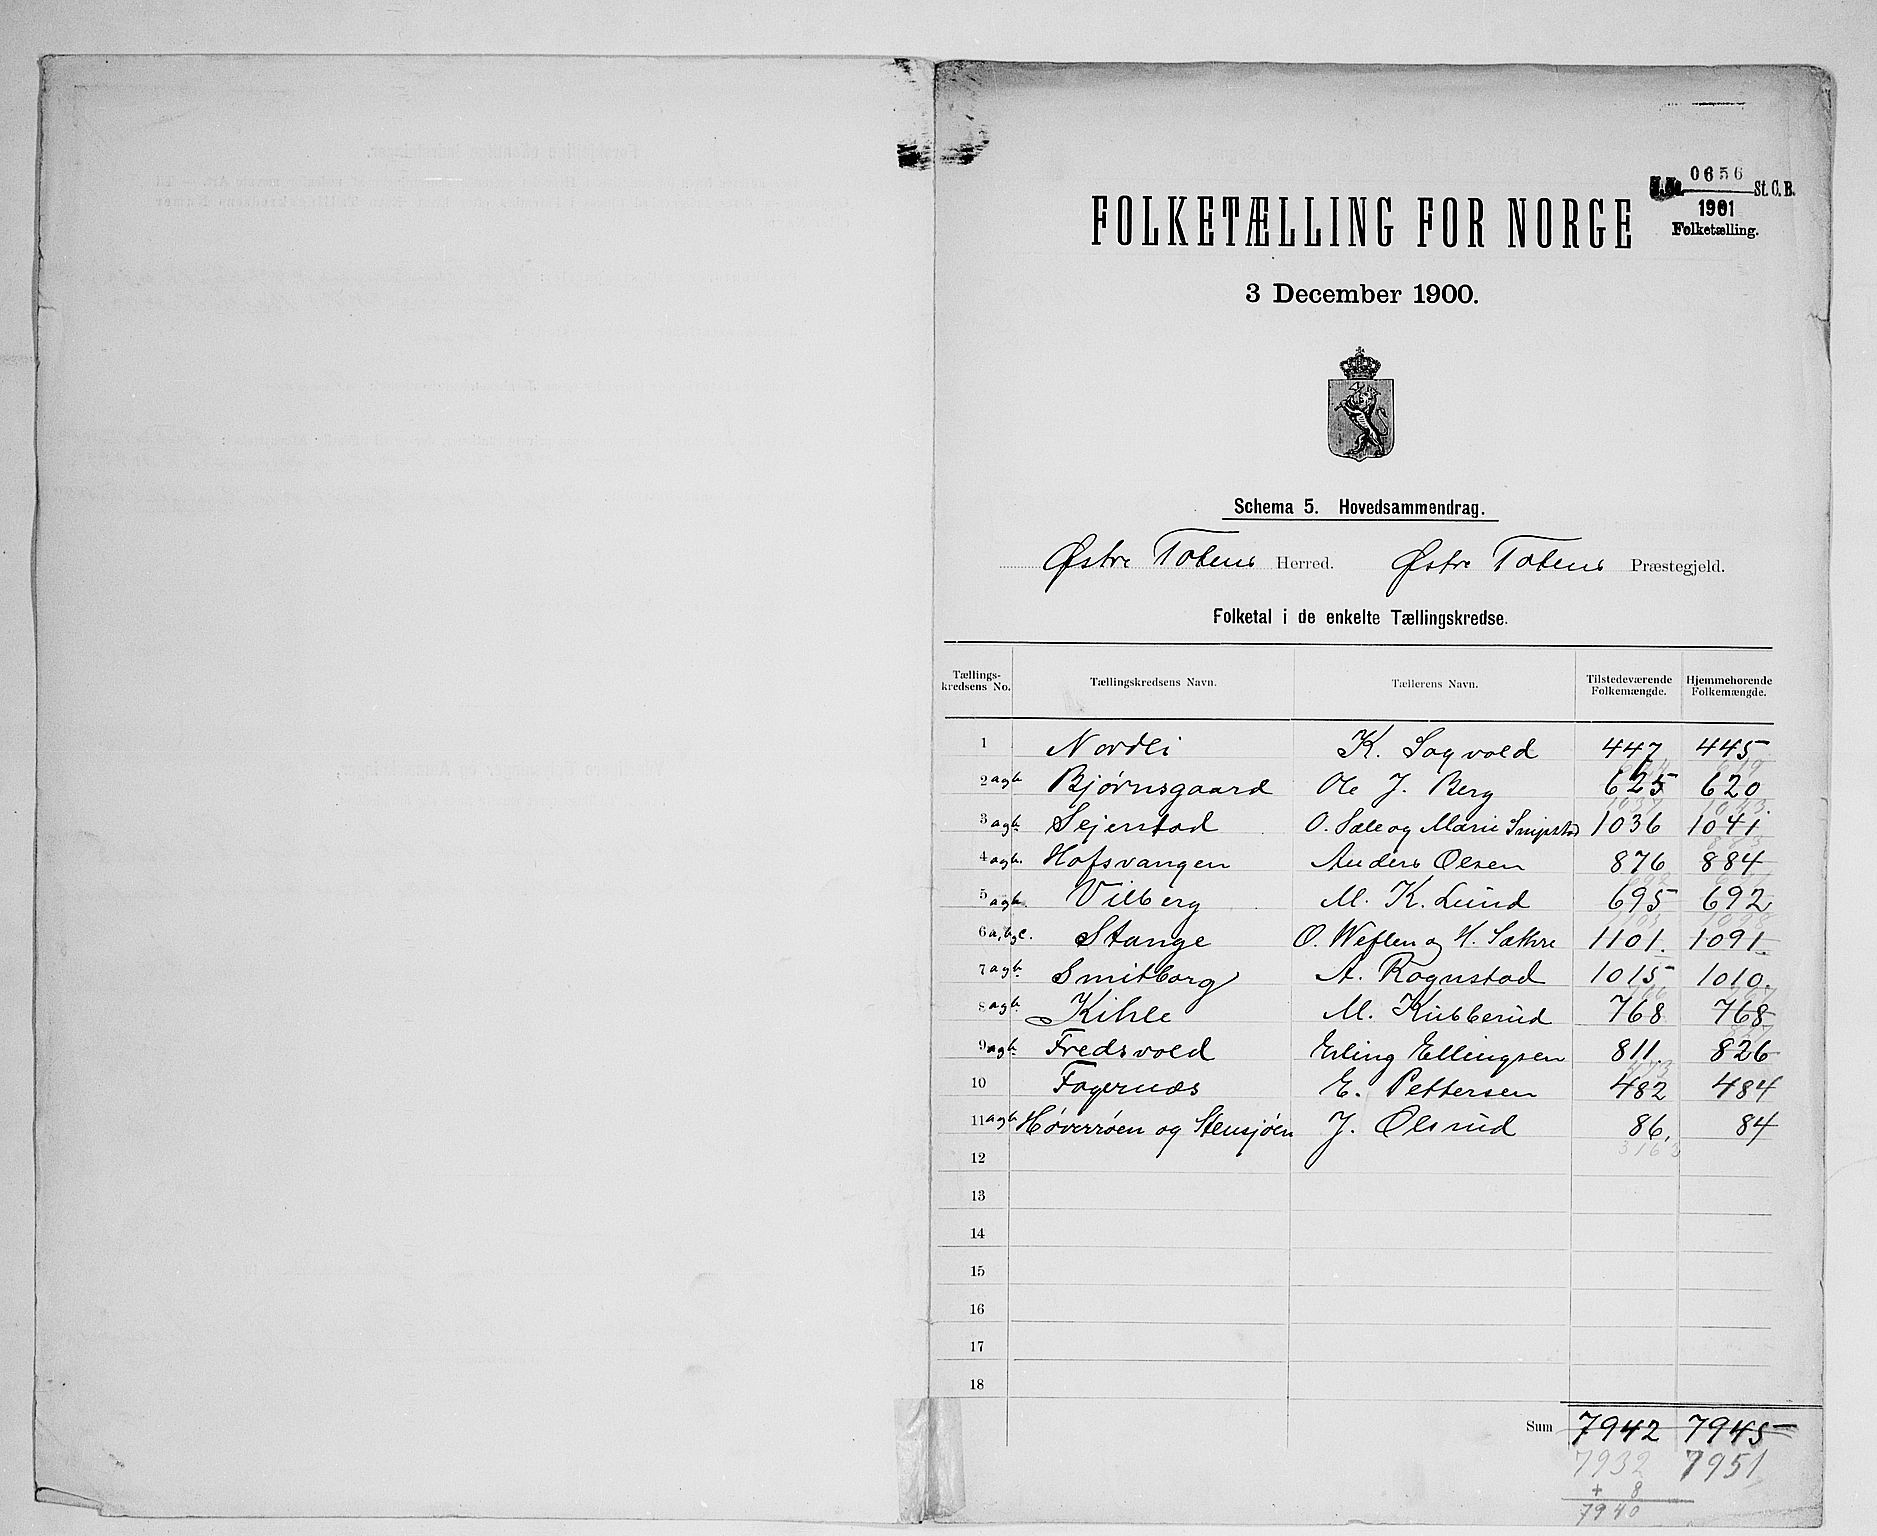 0656
J. No. St. C. B.
1901
Folketælling.
FOLKETÆLLING FOR NORGE
3 December 1900.
Schema 5. Hovedsammendrag.
Østre Totens Herred. Østre Totens Præstegjeld.
Folketal i de enkelte Tællingskredse.
Tællings-kredsens No. Tællingskredsens Navn. Tællerens Navn. Tilstedeværende Folkemængde. Hjemmehørende Folkemængde.
1 Nordli K. Sogvold 447 445
2 a og b Bjørnsgaard Ole J. Berg 625 620
3 a og b. Sejerstad O. Sæle og Marie Snipstad 1036 1041
4 a og b. Hofsvangen Anders Olsen 876 884
5 a og b. Vilberg M. K. Lund 695 692
6 a, b og c. Stange O. Weflen og H. Sæthre 1101. 1091
7 a og b. Smitborg A. Rognstad 1015 1010.
8 a og b. Kihle M. Kubberud 768 768
9 a og b. Fredsvold Erling Ellingsen 811. 826
10 Fagernæs E. Pettersen 482 484
11 a og b Høverrøen og Stensjøen J. Ølsrud 86. 84
12
13
14
15
16
17
18
Sum 7942 7945
7932 7951
+ 8
7940